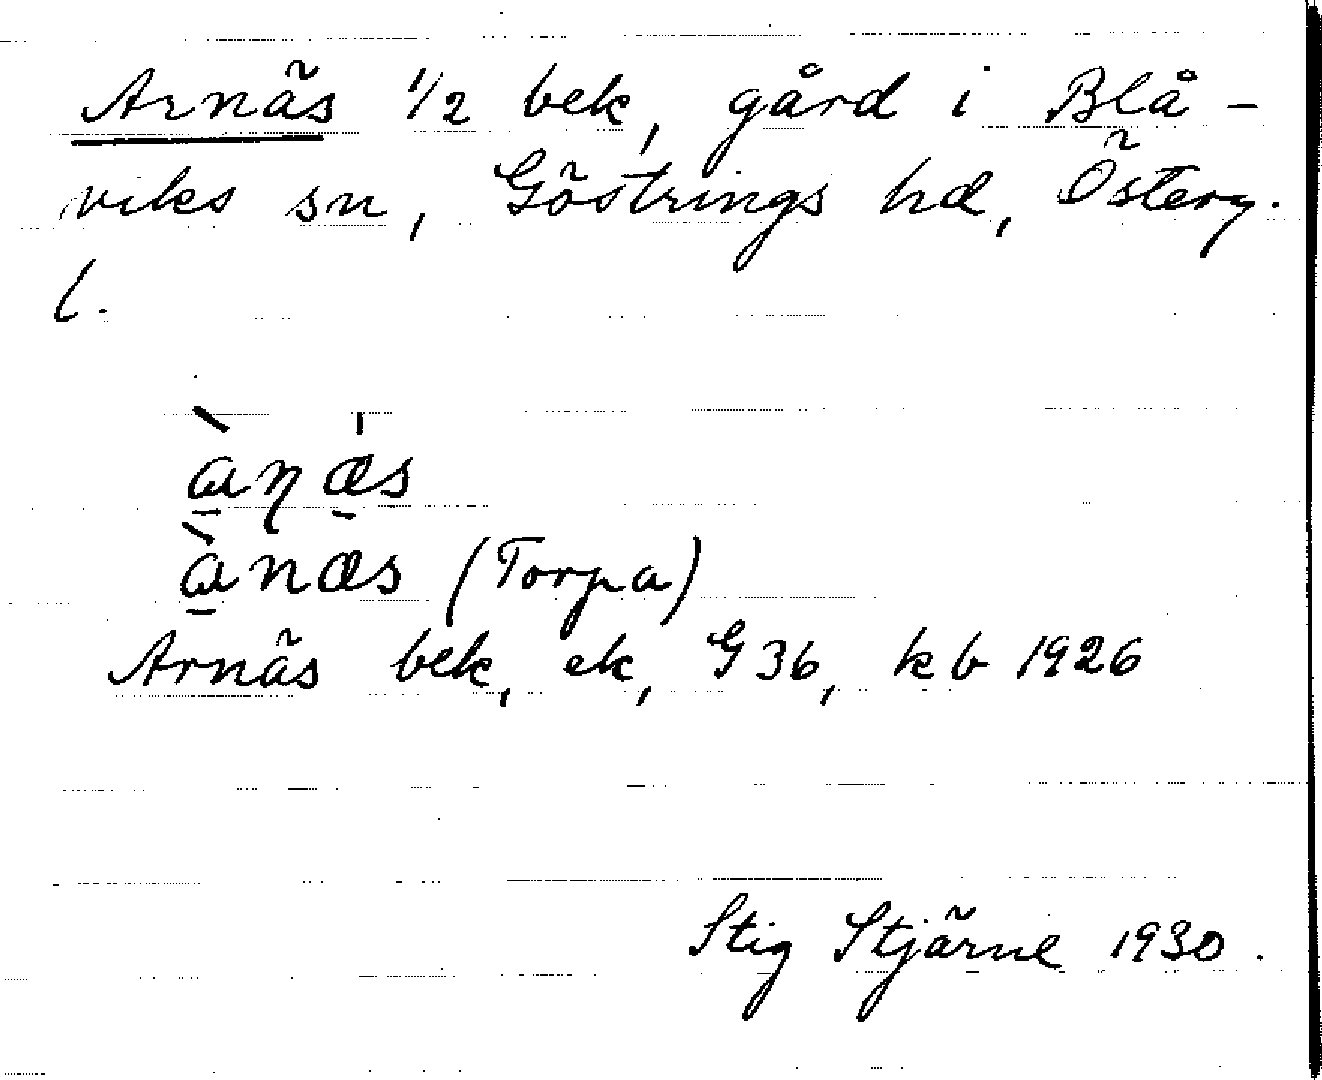 Arnäs 1/2 bek, gård i Blå-
viks sn, Göstrings hd, Österg.
l.
ànæs (Torpa)
Arnäs bek, ek, G 36, kb 1926
Stig Stjärne 1930.